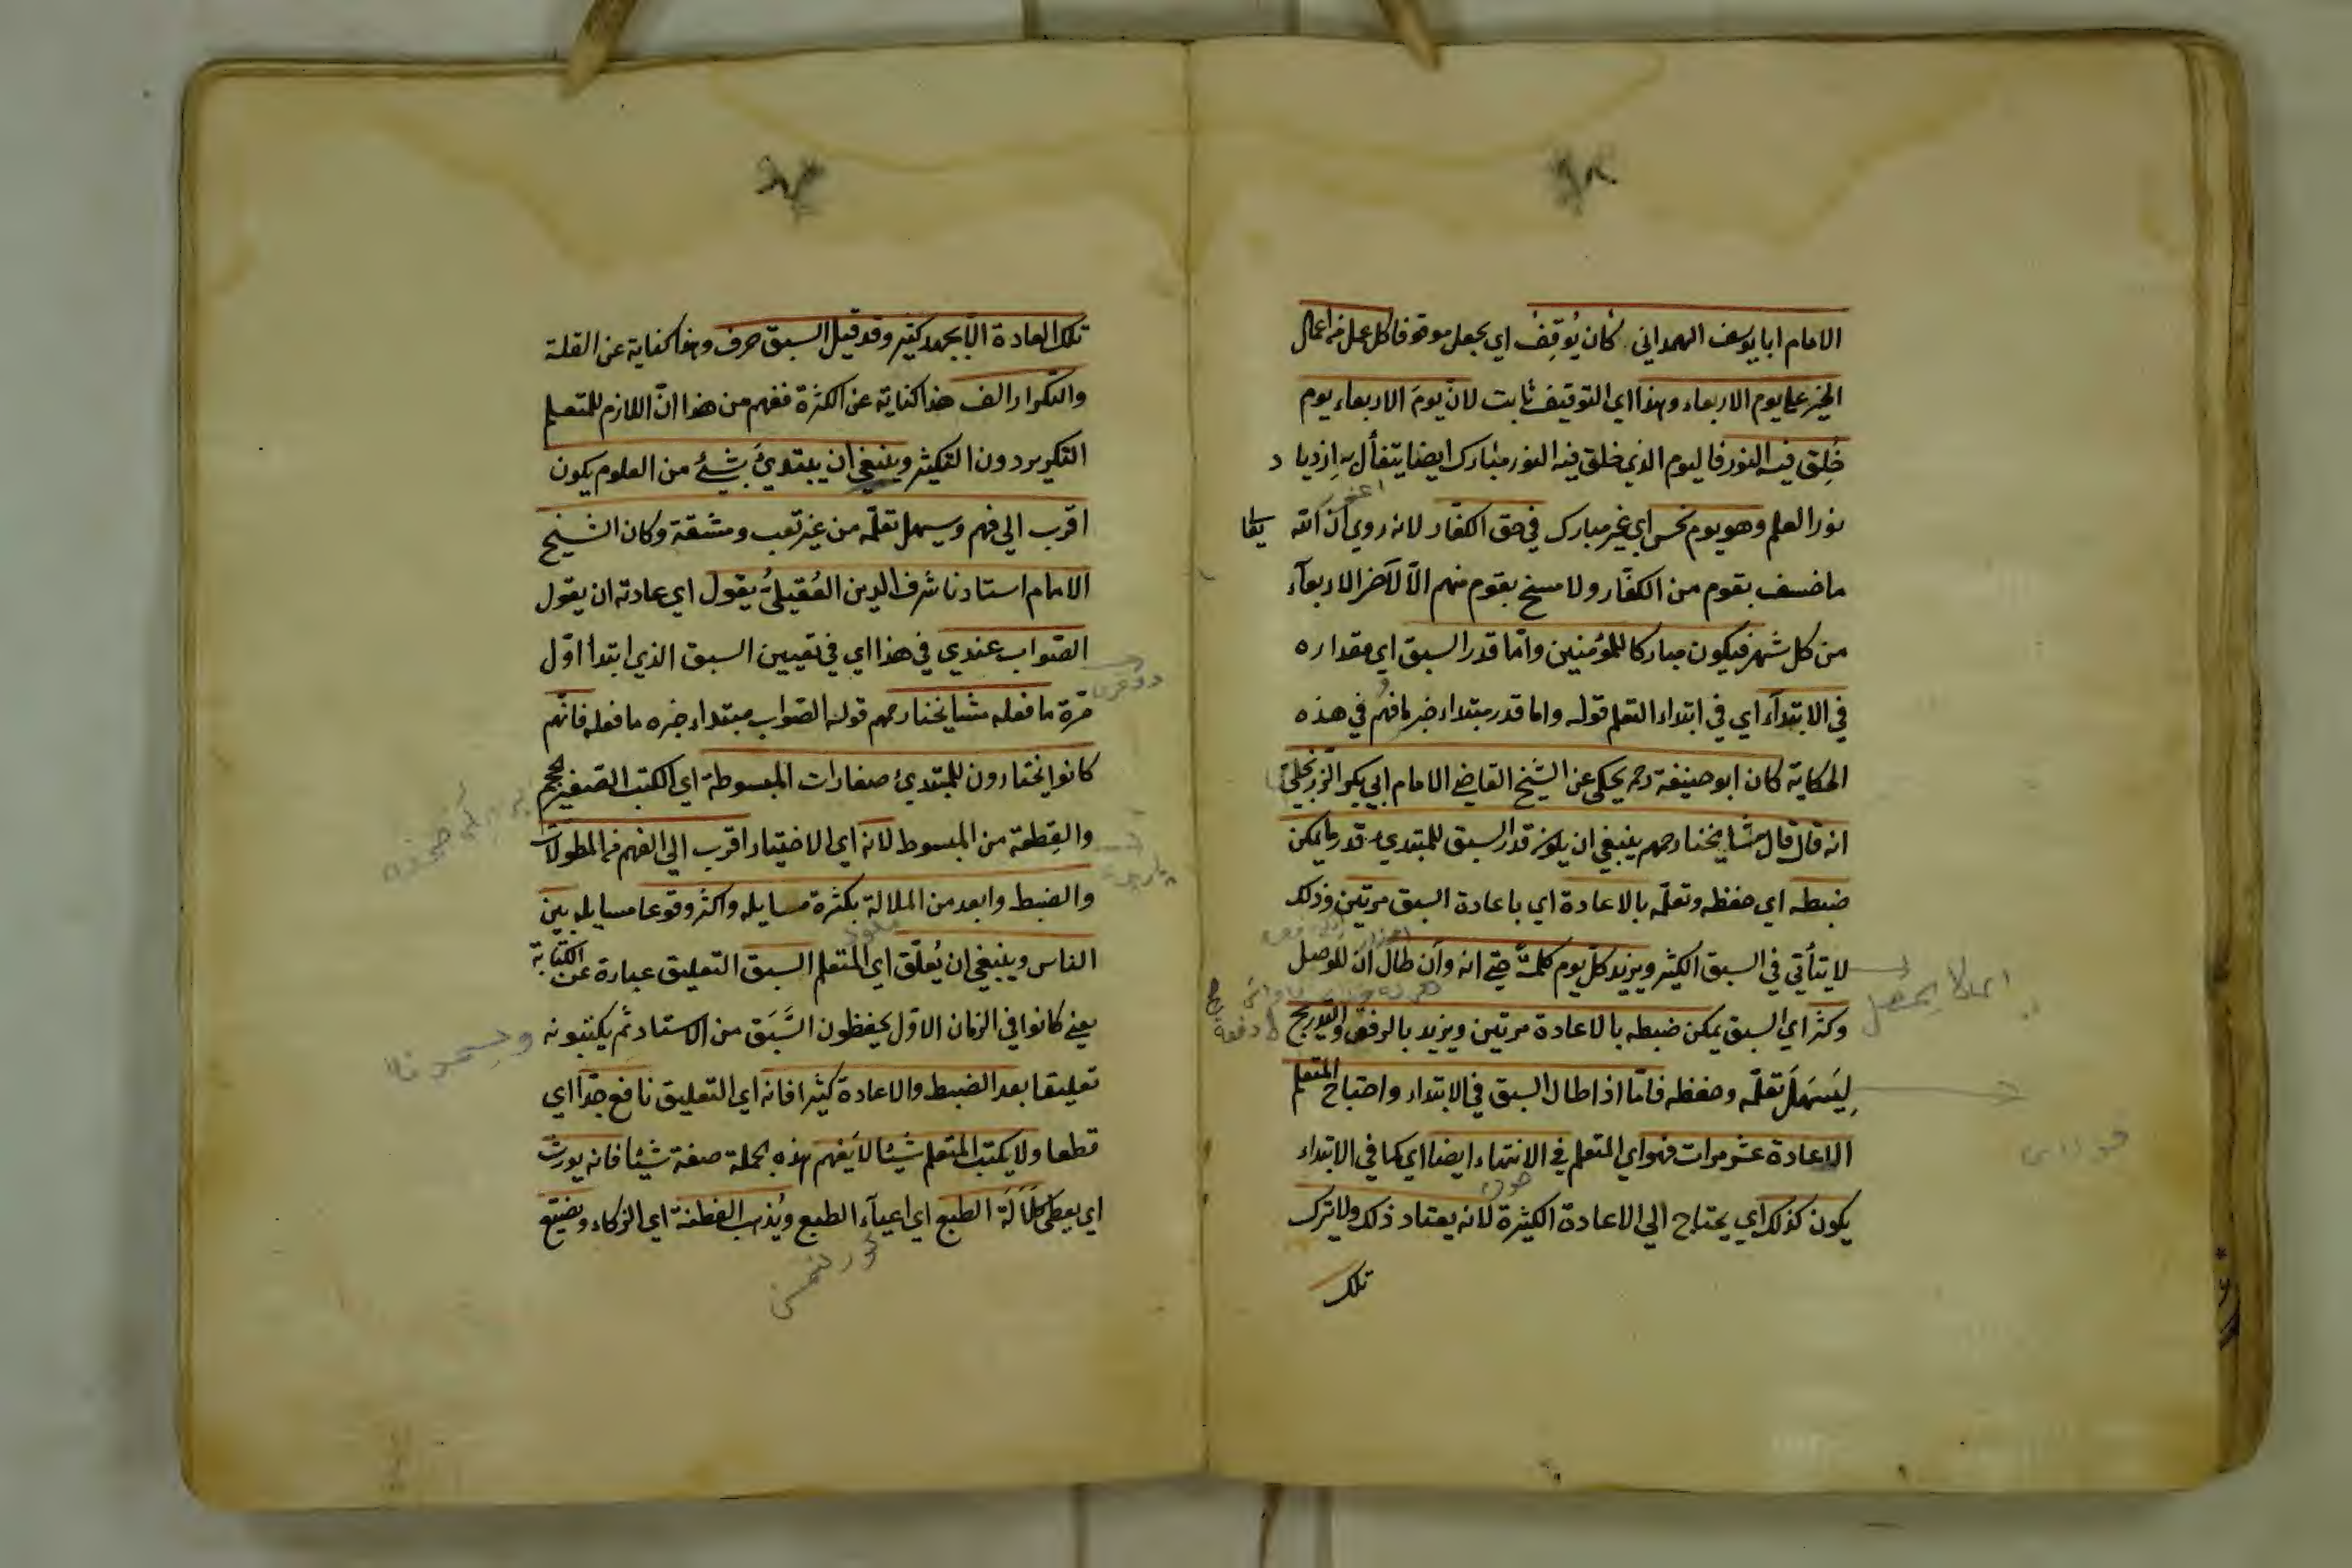 الامام ابا يوسف الهمداني كان يُوقِفُ اي يجعل موقوفا كل عمل من اعمال
الخير على يوم الاربعاء وهذا اي التوقيف ثابت لانّ يومَ الاربعاء يوم
خُلِق فيه النور فاليوم الذي خلق فيه النور مبارك ايضا يتفأل به ازديا د
نور العلم وهو يوم نحس اي غير مبارك في حق الكفّار لانه روي ان الله
ما خسف بقوم من الكفّار ولا مسخ بقوم منهم الّا لآخر الاربعآء
من كل شهر فيكون مباركا للمؤمنين وامّا قدر السبق اي مقداره
في الابتدآء اي في ابتداء التعلم قوله واما قدر مبتداء خبر ما فهم في هذه
الحكاية كان ابو حنيفة رحمه يحكى عن الشيخ القاضي الامام ابي بكر الزرنجيّ
انه قال قال مشايخنا رحمهم ينبغي ان يكون قدر السبق للمبتدي قدر ما يمكن
ضبطه اي حفظه وتعلّمه بالاعادة اي باعادة السبق مرتين وذلك
لا يتأتي في السبق الكثير ويزيد كل يوم كلمة حتى انه وان طال ان للوصل
وكثر اي السبق يمكن ضبطه بالاعادة مرتين ويزيد بالرفق والتدريج
لِيَسهَلَ تعلّمه وحفظه فامّا اذا طال السبق في الابتداء واحتاج المتعلم
الاعادة عشر مرات فهو اي المتعلم في الانتهاء ايضا اي كما في الابتداء
يكون كذلك اي يحتاج الي الاعادة الكثيرة لانه يعتاد ذلك ولا يترك
تلك
تلك العادة الّا بجهد كثير وقد قيل السبق حرف وهذا كناية عن القلة
والتكرار الف هذا كناية عن الكثرة ففهم من هذا انّ اللازم للمتعلم
التكرير دون التكثير وينبغي ان يبتديُ بشئ من العلوم يكون
اقرب الي فهم وسهل تعلّمه من غير تعب ومشقة وكان الشيخ
الامام استادنا شرف الدين العُقيلي يقول اي عادته ان يقول
الصّواب عندي في هذا اي في تعيين السبق الذي ابتدأ اوّل
مرة ما فعله مشايخنا رحمهم قوله الصّواب مبتداء خبره ما فعله فانّهم
كانوا يختارون للمبتديُ صغارات المبسوطة اي الكتب الصغير الحجم
والقِطعة من المبسوط لانه اي الاختيار اقرب الي الفهم من المطولات
والضبط وابعد من الملالة بكثرة مسايله واكثر وقوعا مسايله بين
الناس وينبغي ان يُعلّق اي المتعلم السبق التعليق عبارة عن الكتابة
يعني كانوا في الزمان الاوّل يحفظون السَّبَق من الاستاد ثم يكتبونه
تعليقا بعد الضبط والاعادة كثيرا فانه اي التعليق نافع جدّا اي
قطعا ولا يكتب المتعلم شيئا لا يفهم هذه الجملة صفة شيئا فانه يورث
اي يعطى كَلَالَة الطبع اي اعيآء الطبع ويُذهب الفطنة اي الذكاء ويضيّع